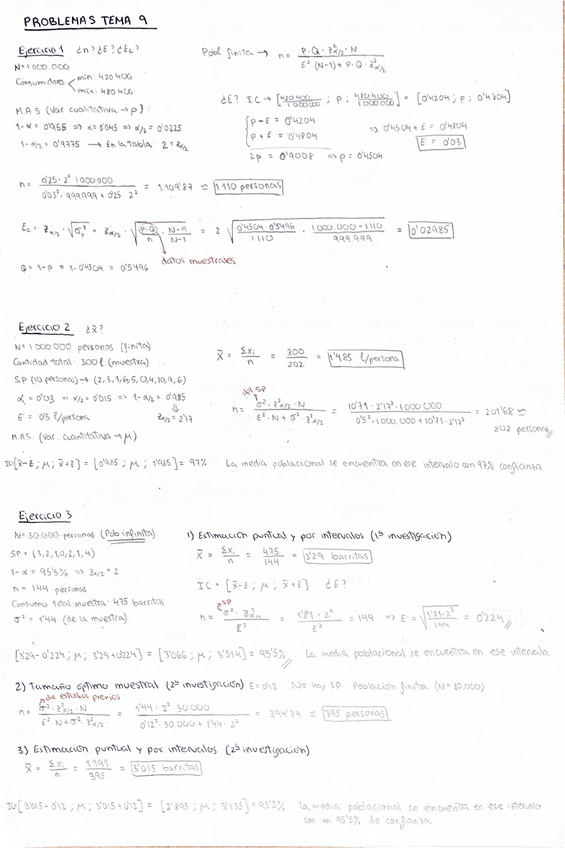 PROBLEMAS TEMA 9
Ejercicio 1 ¿n? ¿E? ¿Ec?
N = 1.000.000
Consumidores min: 420.400
máx: 480.400
M.A.S (Var cualitativa → p)
1-α = 0'955 ⇒ α = 0'045 ⇒ α/2 = 0'0225
1-α/2 = 0'9775 → En la tabla Z = 2
Pobl finita → n = P·Q·Z²α/2·N / E²(N-1) + P·Q·Z²α/2
¿E? IC → [420400/1000000 ; p ; 480.400/1000000] = [0'4204 ; p ; 0'4804]
p - E = 0'4204
p + E = 0'4804
2p = 0'9008 ⇒ p = 0'4504
⇒ 0'4504 + E = 0'4804
E = 0'03
n = 0'25 · 2² · 1000000 / 0'03² · 999999 + 0'25 · 2² = 1.109'87 ≃ 1.110 personas
Ec = Zα/2 · √σp² = Zα/2 · √(P·Q/n · N-n/N-1) = 2 √(0'4504 · 0'5496/1110 · 1000.000 - 1110/999.999) = 0'02985
datos muestrales
Q = 1-p = 1 - 0'4504 = 0'5496
Ejercicio 2 ¿x̄?
N = 1.000.000 personas (finita)
Cantidad total: 300 l (muestra)
SP (10 personas) → (2,3,1,6,5,0,4,10,9,6)
α = 0'03 ⇒ α/2 = 0'015 ⇒ 1-α/2 = 0'985
E = 0'5 l/persona Zα/2 = 2'17
M.A.S. (Var. cuantitativa → μ)
x̄ = Σxi/n = 300/202 = 1'485 l/persona
del SP
n = σ²·Z²α/2·N / E²·N + σ²·Z²α/2 = 10'71 · 2'17² · 1000000 / 0'5² · 1.000.000 + 10'71 · 2'17² = 201'68 ≃
202 personas
IC[x̄-E ; μ ; x̄+E] = [0'985 ; μ ; 1'985] = 97% La media poblacional se encuentra en ese intervalo con 97% confianza
Ejercicio 3
N = 30.000 personas (Pob infinita)
SP = (3,2,1,0,2,1,4)
1-α = 95'5% ⇒ Zα/2 = 2
n = 144 personas
Consumo total muestra: 475 barritas
σ² = 1'44 (de la muestra)
1) Estimación puntual y por intervalos (1ª investigación)
x̄ = Σxi/n = 475/144 = 3'29 barritas
IC = [x̄-E ; μ ; x̄+E] ¿E?
SP
n = σ²·Z²α/2 / E² = 1'81 · 2² / E² = 144 ⇒ E = √(1'81·2²/144) = 0'224
[3'29-0'224 ; μ ; 3'29+0'224] = [3'066 ; μ ; 3'514] = 95'5% La media poblacional se encuentra en ese intervalo
2) Tamaño óptimo muestral (2ª investigación) E = 0'12. No hay SP. Población finita (N = 30.000)
de estudios previos
n = σ²·Z²α/2·N / E²·N + σ²·Z²α/2 = 1'44 · 2² · 30000 / 0'12² · 30.000 + 1'44 · 2² = 394'74 ≃ 395 personas
3) Estimación puntual y por intervalos (2ª investigación)
x̄ = Σxi/n = 1191/395 = 3'015 barritas
IC[3'015-0'12 ; μ ; 3'015+0'12] = [2'895 ; μ ; 3'135] = 95'5% la media poblacional se encuentra en ese intervalo
con un 95'5% de confianza